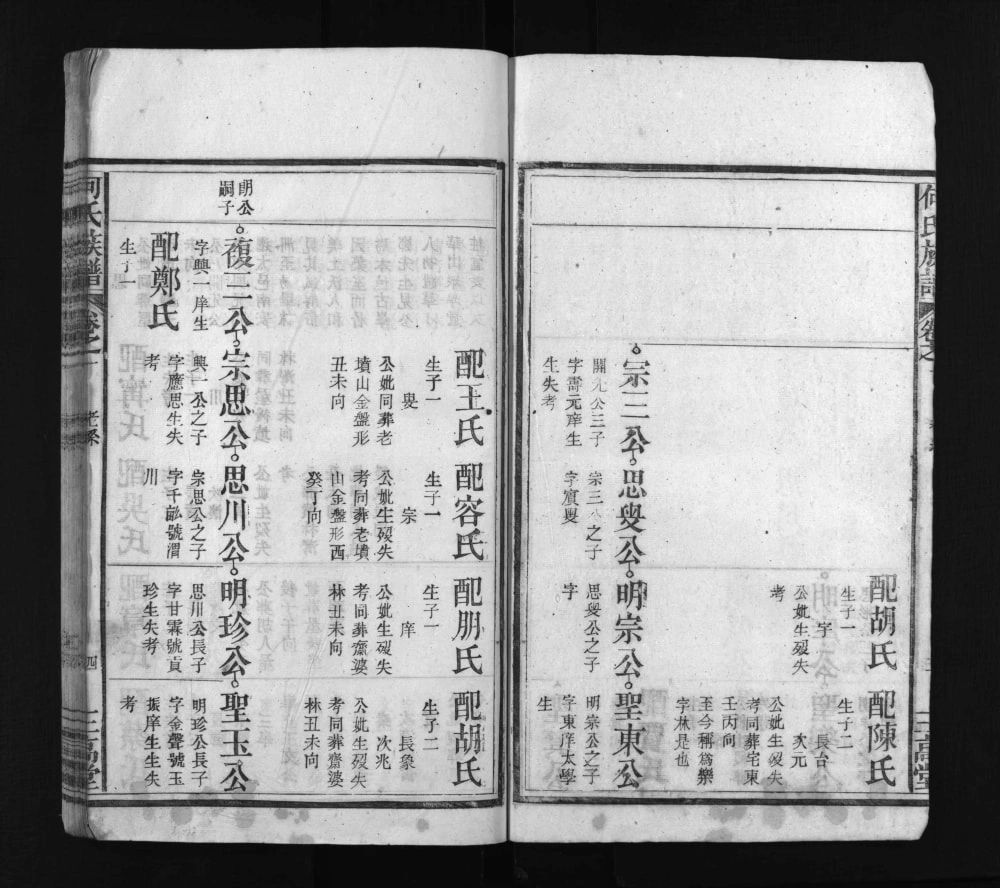 何氏族譜
卷之一
配胡氏
生子一
宇
公妣生歿失
考
配陳氏
生子二
長台
次元
公妣生歿失
考同葬宅東
壬丙向
至今稱為樂
字林是也
宗三公
開先公三子
字壽元庠生
生失考
思叟公
宗三公之子
字賓叟
明宗公
思叟公之子
字
聖東公
明宗公之子
字東庠太學
生
配王氏
生子一
叟
公妣同葬老
墳山金盤形
丑未向
配容氏
生子一
宗
公妣生歿失
考同葬老墳
山金盤形西
癸丁向
配朋氏
生子一
庠
公妣生歿失
考同葬齋婆
林丑未向
配胡氏
生子二
長象
次兆
公妣生歿失
考同葬齋婆
林丑未向
明公
嗣子
復一公
字興一庠生
配鄭氏
生子一
宗思公
興一公之子
字應思生失
考
思川公
宗思公之子
字千畝號渭
川
明珍公
思川公長子
字甘霖號貢
珍生失考
聖玉公
明珍公長子
字金聲號玉
振庠生生失
考
何氏族譜
卷之一
老系
四
三高堂